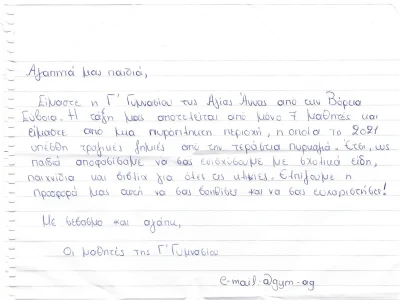 Αγαπητά μας παιδιά,
Είμαστε η Γ' Γυμνασίου της Αγίας Άννας από την Βόρεια
Εύβοια. Η τάξη μας αποτελείται από μόνο 7 μαθητές και
είμαστε από μια πυρόπληκτη περιοχή, η οποία το 2021
υπέστη τραγικές ζημιές από την τεράστια πυρκαγιά. Έτσι, ως
παιδιά αποφασίσαμε να σας ενισχύσουμε με σχολικά είδη,
παιχνίδια και βιβλία για όλες τις ηλικίες. Ελπίζουμε η
προσφορά μας αυτή να σας βοηθήσει και να σας ευχαριστήσει!
Με σεβασμό και αγάπη,
Οι μαθητές της Γ' Γυμνασίου
e-mail: @gym-ag